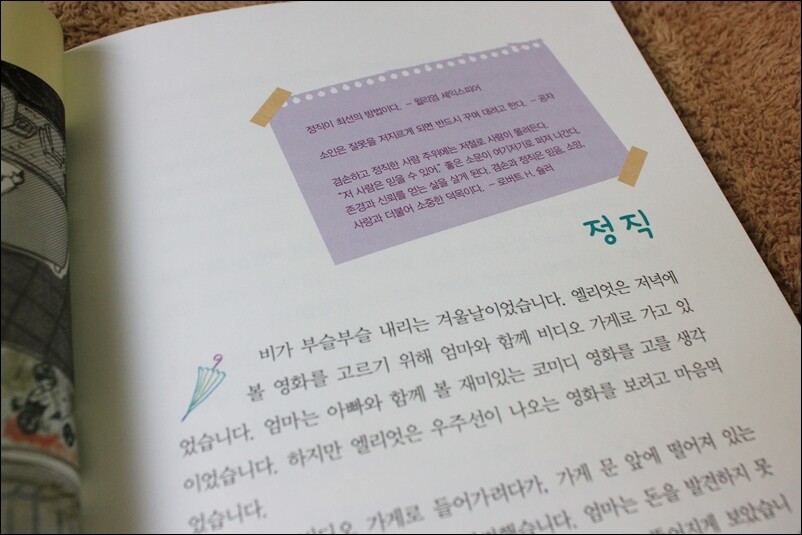 정직이 최선의 방법이다. - 윌리엄 셰익스피어
소인은 잘못을 저지르게 되면 반드시 꾸며 대려고 한다. - 공자
겸손하고 정직한 사람 주위에는 저절로 사람이 몰려든다.
"저 사람은 믿을 수 있어." 좋은 소문이 여기저기로 퍼져 나간다.
존경과 신뢰를 얻는 삶을 살게 된다. 겸손과 정직은 믿음, 소망,
사랑과 더불어 소중한 덕목이다. - 로버트 H. 슐러
정직
비가 부슬부슬 내리는 겨울날이었습니다. 엘리엇은 저녁에
볼 영화를 고르기 위해 엄마와 함께 비디오 가게로 가고 있
었습니다. 엄마는 아빠와 함께 볼 재미있는 코미디 영화를 고를 생각
이었습니다. 하지만 엘리엇은 우주선이 나오는 영화를 보려고 마음먹
었습니다.
가게로 들어가려다가, 가게 문 앞에 떨어져 있는
엄마는 돈을 발견하지 못
보았습니